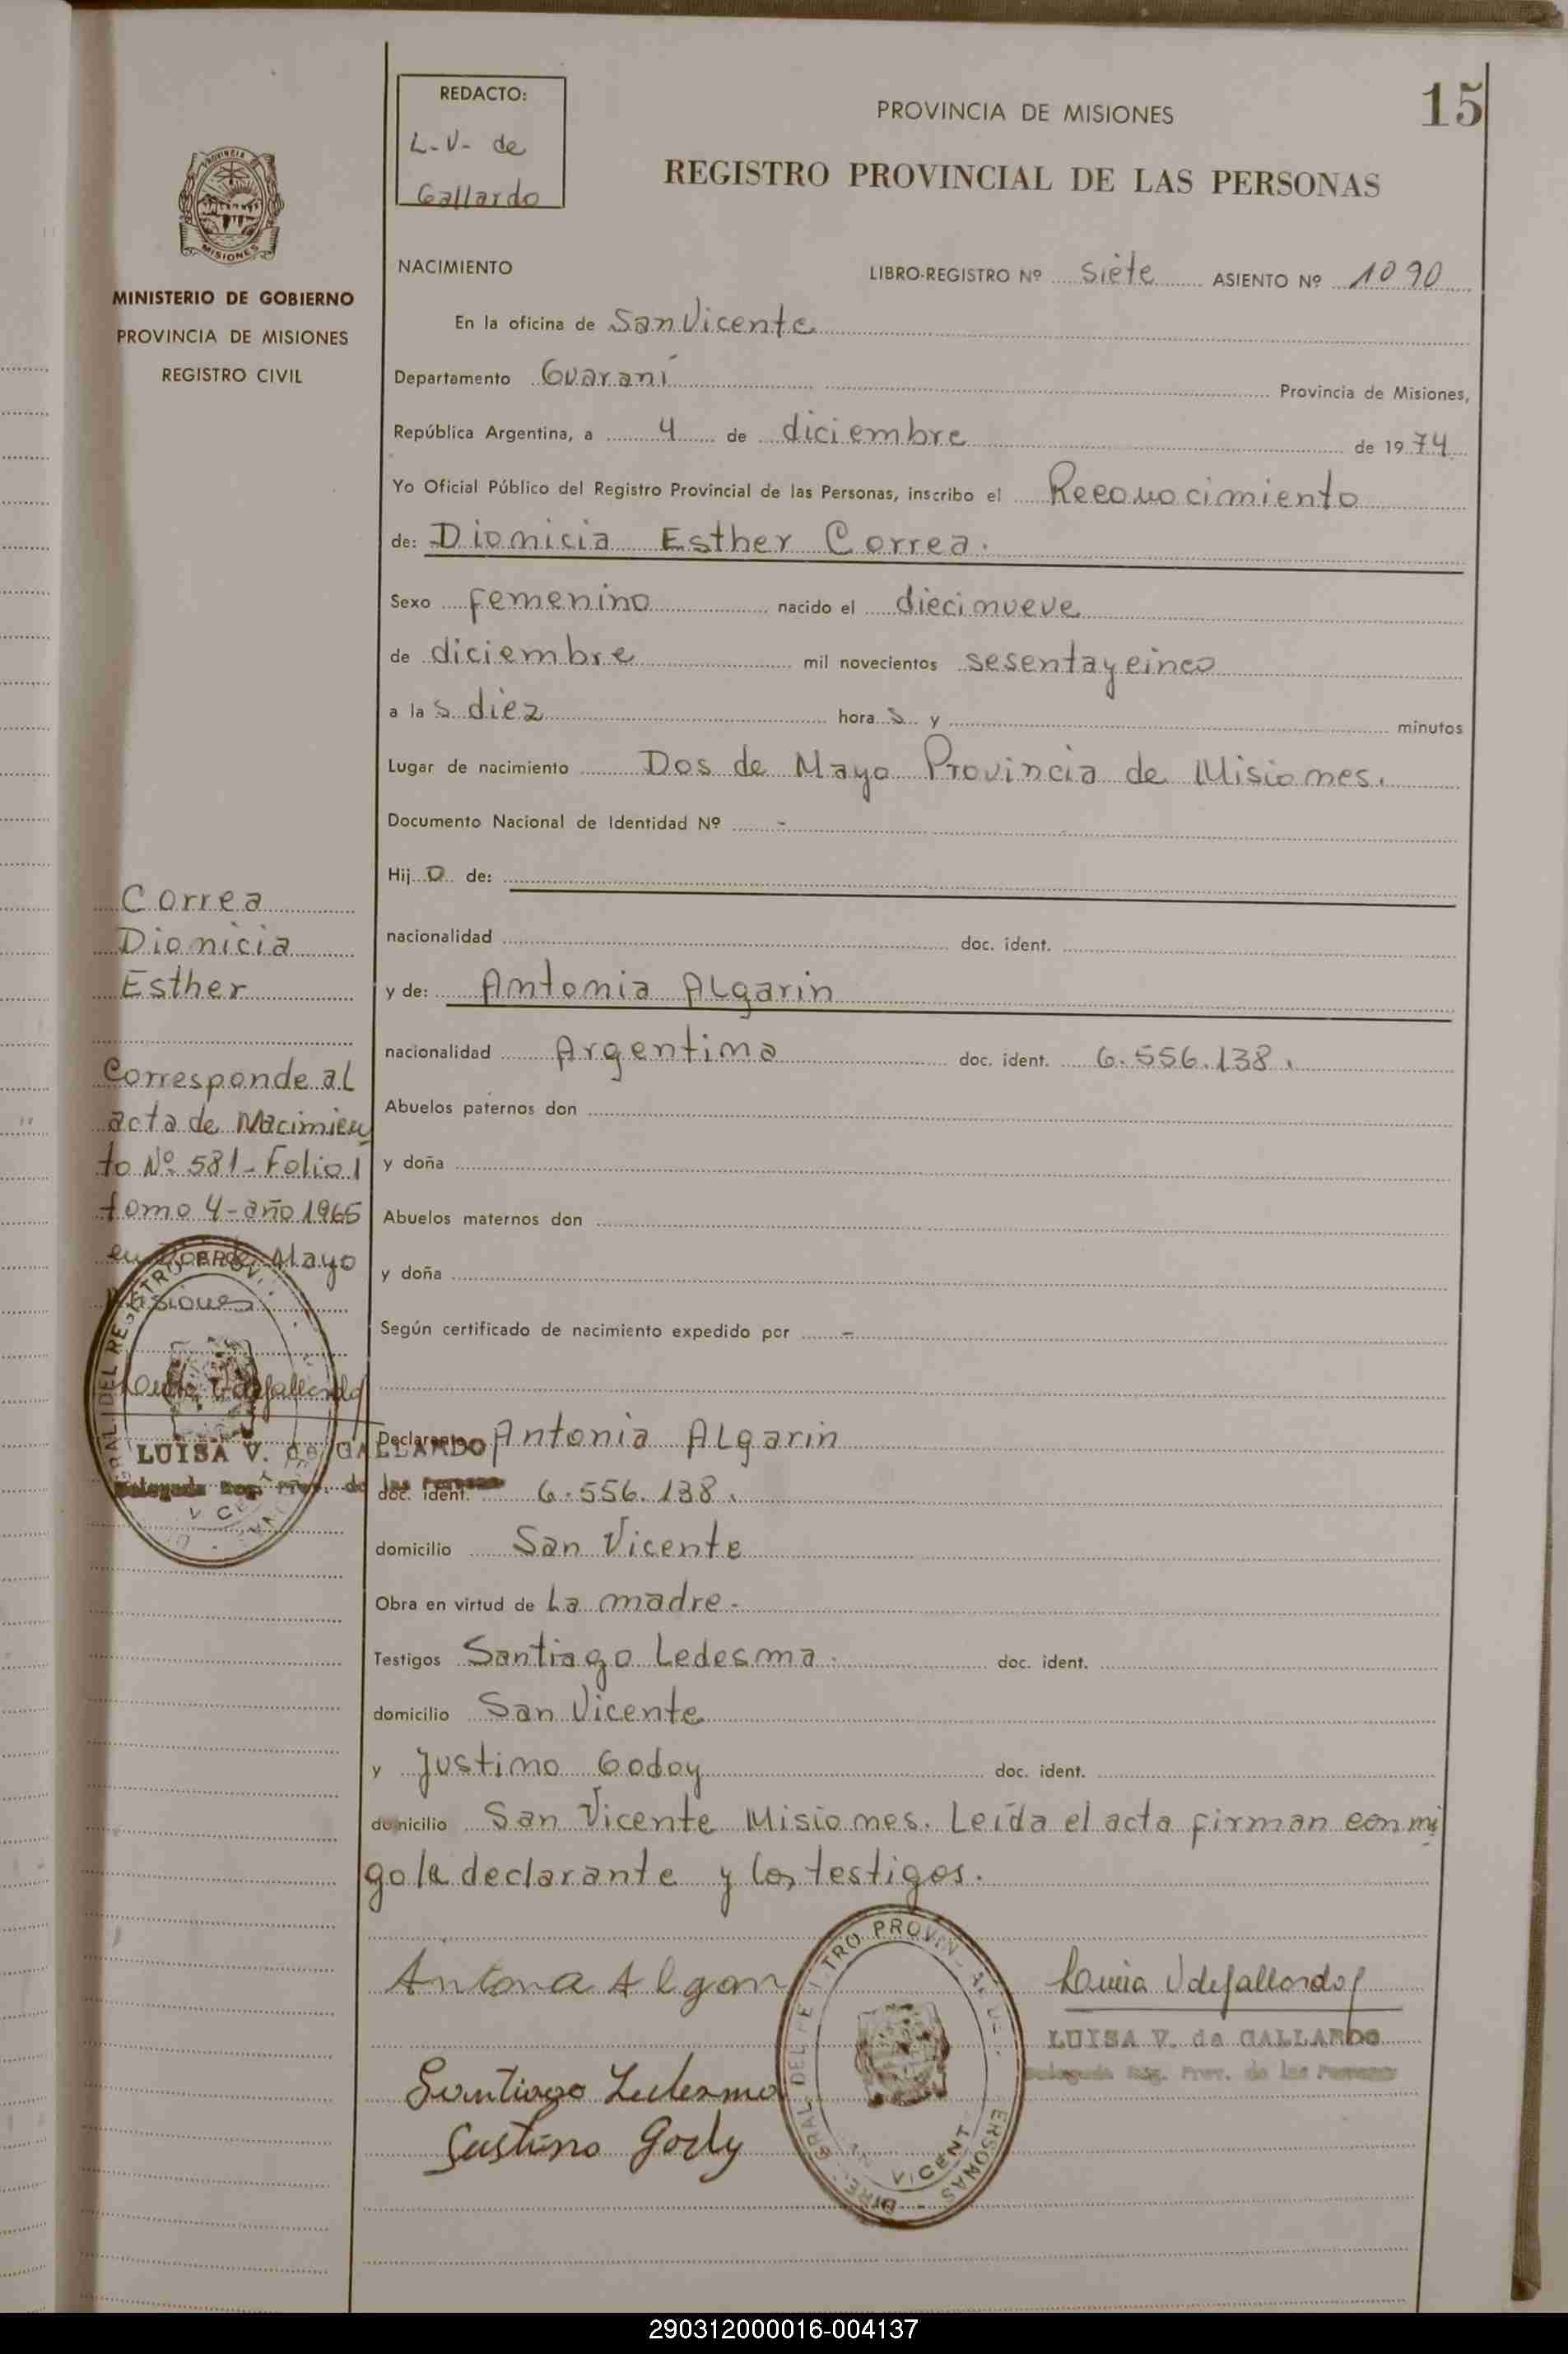 REDACTO:
L-V- de
Gallardo
PROVINCIA DE MISIONES
15
REGISTRO PROVINCIAL DE LAS PERSONAS
MISIONES
MINISTERIO DE GOBIERNO
PROVINCIA DE MISIONES
REGISTRO CIVIL
NACIMIENTO LIBRO-REGISTRO Nº siete ASIENTO Nº 1090
En la oficina de San Vicente
Departamento Guaraní Provincia de Misiones,
República Argentina, a 4 de diciembre de 1974
Yo Oficial Público del Registro Provincial de las Personas, inscribo el Reconocimiento
de: Dionicia Esther Correa.
Sexo femenino nacido el diecinueve
de diciembre mil novecientos sesenta y cinco
a las diez horas y minutos
Lugar de nacimiento Dos de Mayo Provincia de Misiones.
Documento Nacional de Identidad Nº -
Hijo de:
nacionalidad doc. ident.
y de: Antonia Algarin
nacionalidad Argentina doc. ident. 6.556.138.
Abuelos paternos don
y doña
Abuelos maternos don
y doña
Según certificado de nacimiento expedido por -
Declarante Antonia Algarin
doc. ident. 6.556.138.
domicilio San Vicente
Obra en virtud de La madre.
Testigos Santiago Ledesma. doc. ident.
domicilio San Vicente
y Justino Godoy doc. ident.
domicilio San Vicente Misiones. Leída el acta firman conmi
go la declarante y los testigos.
Correa
Dionicia
Esther
Corresponde al
acta de Nacimien
to Nº 581-Folio 1
tomo 4-año 1965
en Dos de Mayo
Misiones
LUISA V. de GALLARDO
Delegada Reg. Prov. de las Personas
Antona Algarin
Santiago Ledesma
Justino Godoy
LUISA V. de GALLARDO
Delegada Reg. Prov. de las Personas
290312000016-004137